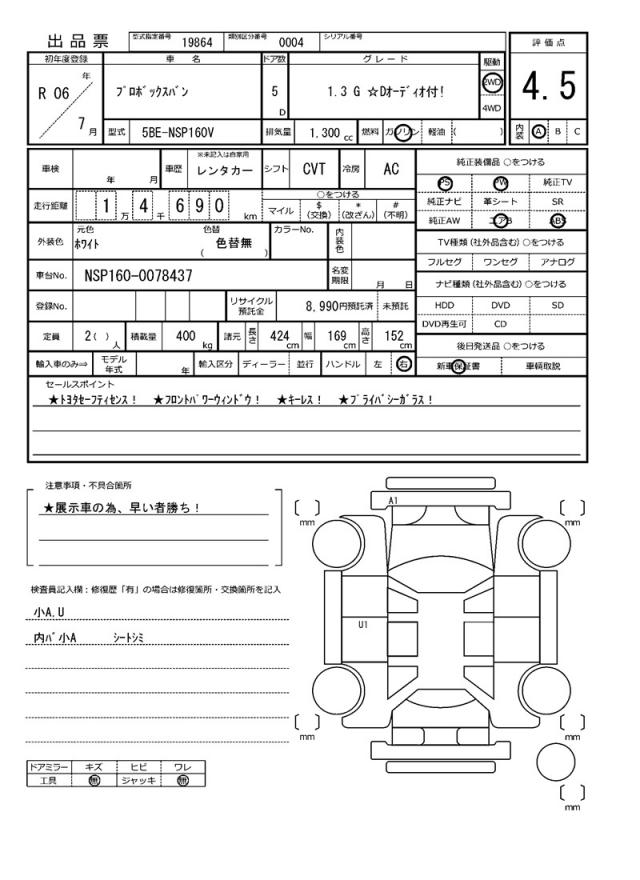 出品票
型式指定番号 19864 類別区分番号 0004 シリアル番号
評価点
4.5
内装 A B C
初年度登録 車名 ドア数 グレード 駆動
R 06 年 7 月
プロボックスバン 5 D 1.3 G ☆Dオーディオ付! 2WD 4WD
型式 5BE-NSP160V 排気量 1.300 cc 燃料 ガソリン 軽油 ( )
車検 年 月 車歴 ※未記入は自家用 レンタカー シフト CVT 冷房 AC
走行距離 1万4千690 km
○をつける
マイル $(交換) *(改ざん) #(不明)
外装色 元色 ホワイト 色替 ( 色替無 ) カラーNo. 内装色
車台No. NSP160-0078437 名変期限 月 日
登録No. リサイクル預託金 8,990円預託済 未預託
定員 2( )人 積載量 400 kg 諸元 長さ 424 cm 幅 169 cm 高さ 152 cm
輸入車のみ⇒ モデル年式 年 輸入区分 ディーラー 並行 ハンドル 左 右
純正装備品 ○をつける
PS PW 純正TV
純正ナビ 革シート SR
純正AW エアB ABS
TV種類(社外品含む)○をつける
フルセグ ワンセグ アナログ
ナビ種類(社外品含む)○をつける
HDD DVD SD
DVD再生可 CD
後日発送品 ○をつける
新車保証書 車輌取説
セールスポイント
★トヨタセーフティセンス! ★フロントパワーウィンドウ! ★キーレス! ★プライバシーガラス!
注意事項・不具合箇所
★展示車の為、早い者勝ち!
検査員記入欄:修復歴「有」の場合は修復箇所・交換箇所を記入
小A.U
内バ小A シートシミ
ドアミラー キズ ヒビ ワレ
工具 無 ジャッキ 無
A1
U1
[ ] mm
[ ] mm
[ ] mm
[ ] mm
[ ] mm